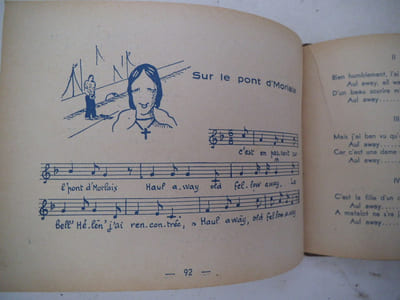 Sur le pont d'Morlaix
c'est en passant sur
l'pont d'Morlaix Haul a-way old fel-low away, La
Bell' Hé-lèn' j'ai ren-con-trée, Haul away, old fellow away
— 92 —
II
Bien humblement, j'ai
Aul away,
D'un beau sourire
Aul away
III
Mais j'ai ben vu qu'
Aul away
Car c'est une dame
Aul away
IV
C'est la fille d'un
Aul away
A matelot ne s'ra
Aul away